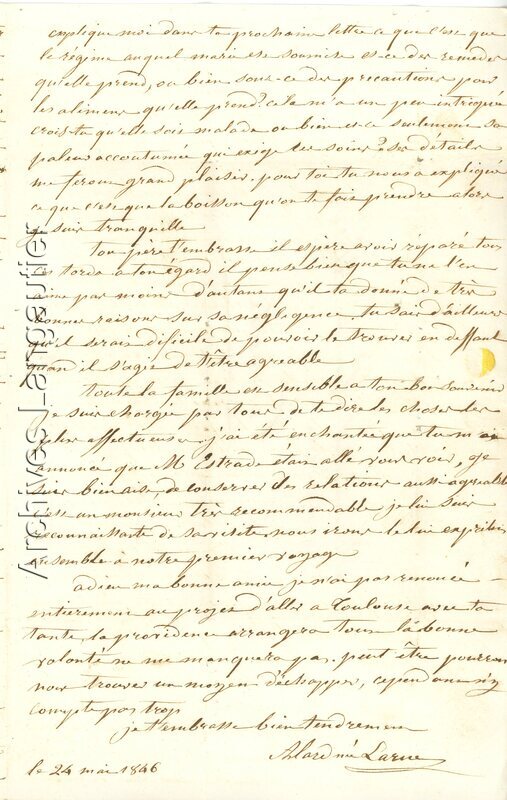 explique moi dans ta prochaine lettre ce que c'est que
le régime auquel marie est soumise est-ce des remedes
qu'elle prend, ou bien sont-ce des precautions pour
les alimens qu'elle prend? cela m'a un peu intriguée
crois-tu qu'elle soit malade ou bien est-ce seulement sa
paleur accoutumée qui exige ces soins? ses détails
me feront grand plaisir. pour toi tu nous a expliqué
ce que c'est que la boisson qu'on te fait prendre alors
je suis tranquille
ton père t'embrasse il espère avoir réparé tous
ces torts a ton égard il pense bien que tu ne l'en
aime pas moins d'autant qu'il ta donné de très
bonnes raisons sur sa négligence, tu sais d'ailleurs
qu'il serait dificile de pouvoir le trouver en deffaut
quand il s'agit de t'être agreable
toute la famille est sensible a ton bon souvenir
je suis chargée par tous de te dire les choses les
plus affectueuses. j'ai été enchantée que tu m'ai
annoncé que Mr Estrade etait allé vous voir, je
suis bien aise, de conserver des relations aussi agreables
c'est un monsieur très recommandable je lui suis
reconnaissante de sa visite nous irons le lui exprimer
ensemble à notre premier voyage
adieu ma bonne amie je n'ai pas renoncé
entierement au projet d'aller a Toulouse avec ta
tante, la providence arrangera tout la bonne
volonté ne me manquera pas. peut être pourrons
nous trouver un moyen d'échapper, cependant n'y
compte pas trop
je t'embrasse bien tendrement
née Larue
le 24 mai 1846
Archives Langautier